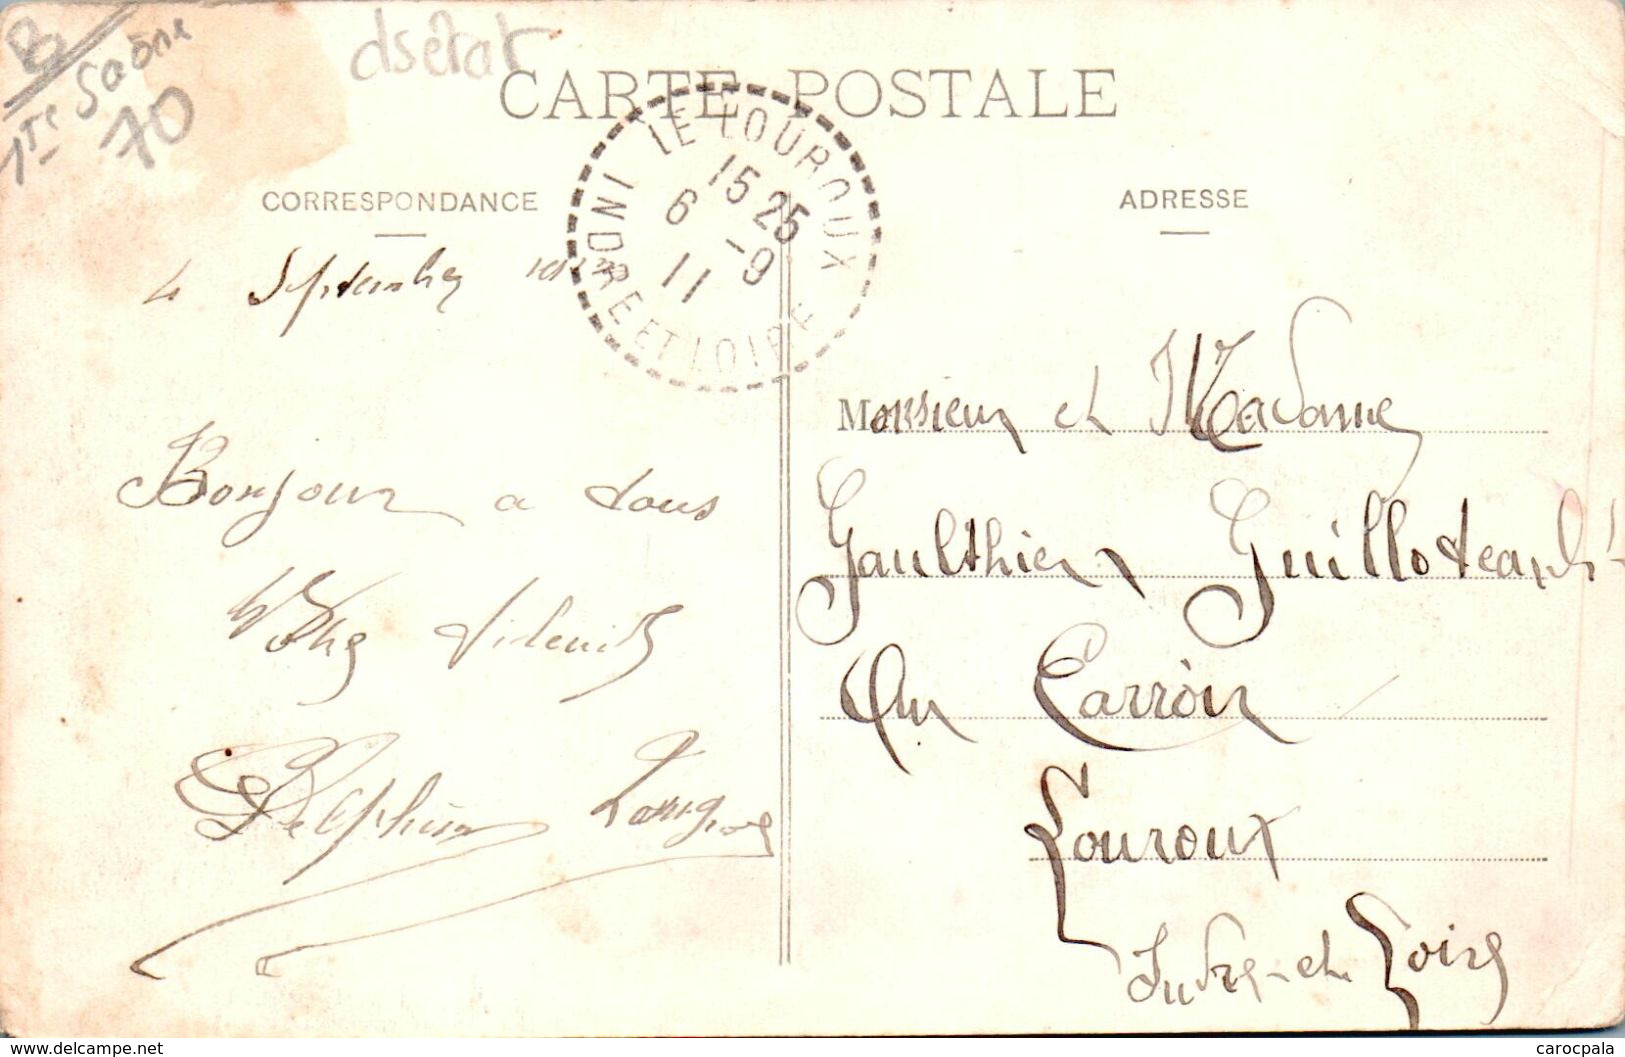 Hte Saône
70
dsétat
CARTE POSTALE
LE LOUROUX
15 25
6 -9
11
INDRE ET LOIRE
CORRESPONDANCE
ADRESSE
4 Septembre
Bonjour a tous
Votre
Delphin
Monsieur et Madame
Gaulthier Guilloteau
Au Carroir
Louroux
Indre-et-Loire
carocpala